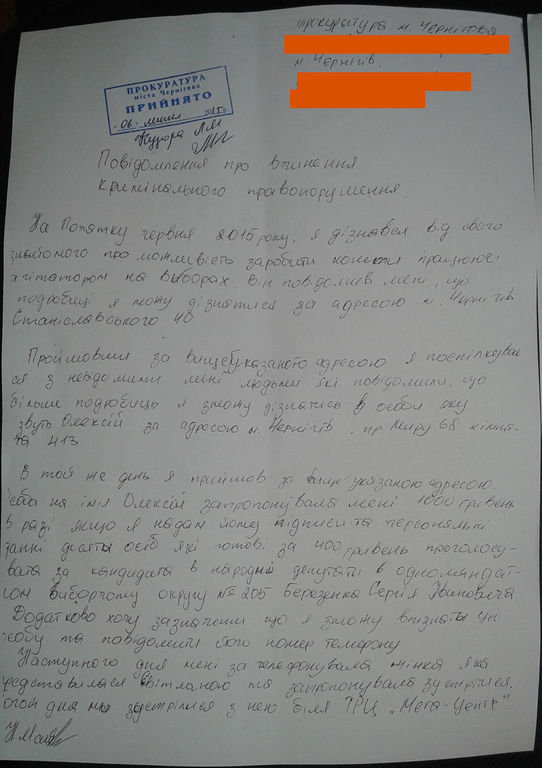 Прокуратура м. Чернігова
м. Чернігів.
ПРОКУРАТУРА
міста Чернігова
ПРИЙНЯТО
06 липня 2015р.
Повідомлення про вчинення
кримінального правопорушення.
На початку червня 2015 року, я дізнався від свого
знайомого про можливість заробити кошти працюючи
агітатором на выборах. Він повідомив мені, що
подробиці я можу дізнатися за адресою м. Чернігів
Станіславського 40
Пройшовши за вищевуказаною адресою я поспілкував
ся з невідомими мені людьми які повідомили, що
більш подробиць я зможу дізнатись в особи яку
звуть Олексій за адресою м. Чернігів, пр. Миру 68 кімна-
та 413
В той же день я прийшов за вищі указаною адресою.
Особа на імія Олексій запропонувала мені 1000 гривень
в разі якщо я надам йому підписи та персональні
данні десяти осіб які готові за 400 гривень проголосу-
вати за кандидата в народні депутати в одномандат-
ном виборчому округу № 205 Березенка Сергія Івановича
Додатково хочу зазначити що я зможу впізнати цю
особу та повідомити його номер телефону
Наступного дня мені зателефонувала жінка яка
представилася Світланою та запропонувала зустрітися.
того дня ми зустрілися з нею біля ТРЦ „Мега-Центр".